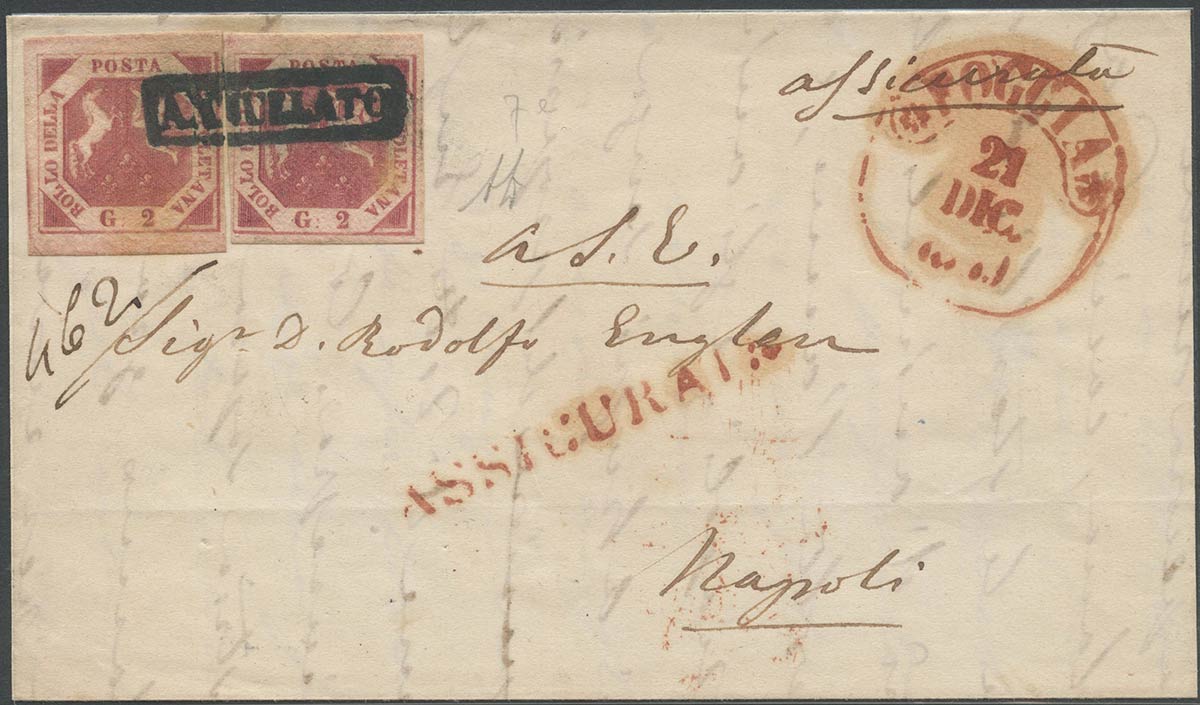 POSTA
BOLLO DELLA
NAPOLETANA
G. 2
POSTA
BOLLO DELLA
POLETANA
G. 2
ANNULLATO
assicurata
FOGGIA
21
DIC.
7e
a S. E.
462
Sigr. D. Rodolfo Englen
ASSICURATA
Napoli